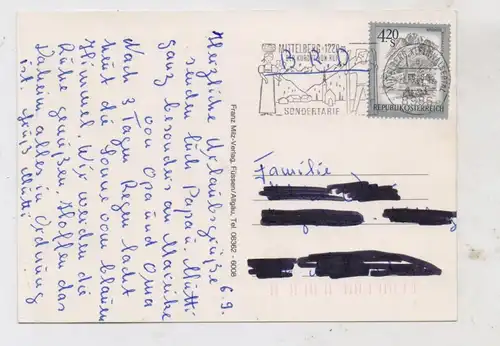 6.9.
Herzliche Urlaubsgrüße
senden Euch Papa u. Mutti
ganz besonders an Mareike
von Opa und Oma
Nach 3 Tagen Regen lacht
heut die Sonne vom blauen
Himmel. Wir werden die
Ruhe genießen. Hoffen das
Daheim alles in Ordnung
ist. Grüß Mutti
Franz Milz-Verlag, Füssen/Allgäu, Tel. 08362 - 6008
MITTELBERG · 1220 m
BRD
SONDERTARIF
4.20
S
REPUBLIK ÖSTERREICH
Familie